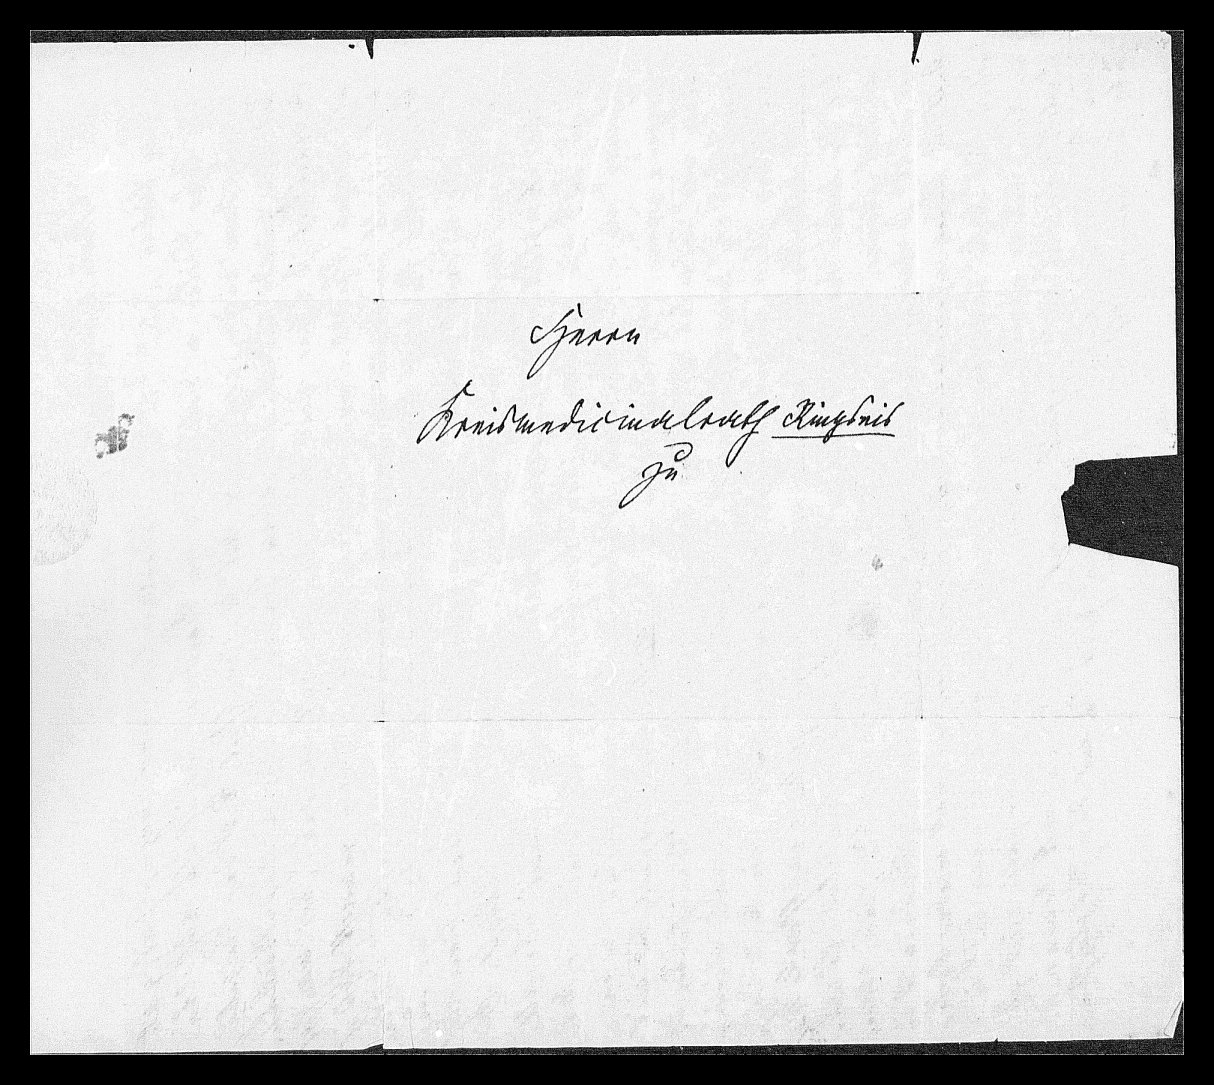 Herrn
Kreismedicinalrath Ringseis
zu